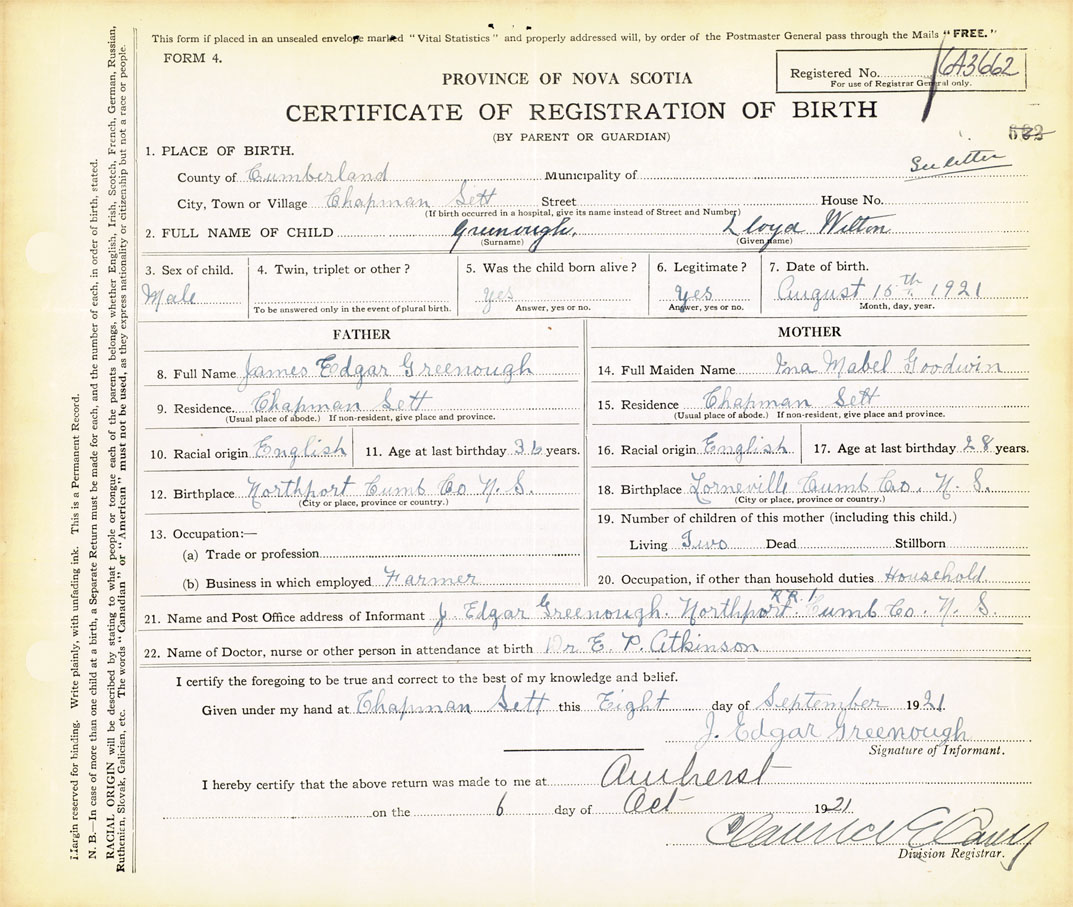 This form if placed in an unsealed envelope marked "Vital Statistics" and properly addressed will, by order of the Postmaster General pass through the Mails "FREE."
FORM 4.
Registered No. 6A3662
For use of Registrar General only.
PROVINCE OF NOVA SCOTIA
CERTIFICATE OF REGISTRATION OF BIRTH
(BY PARENT OR GUARDIAN)
1. PLACE OF BIRTH.
See letter
County of Cumberland Municipality of
City, Town or Village Chapman Sett Street House No.
(If birth occurred in a hospital, give its name instead of Street and Number)
2. FULL NAME OF CHILD Greenough. Lloyd Wilton
(Surname) (Given name)
3. Sex of child. 4. Twin, triplet or other? 5. Was the child born alive? 6. Legitimate? 7. Date of birth.
Male yes yes August 15th 1921
To be answered only in the event of plural birth. Answer, yes or no. Answer, yes or no. Month, day, year.
FATHER
8. Full Name James Edgar Greenough
9. Residence. Chapman Sett
(Usual place of abode.) If non-resident, give place and province.
10. Racial origin English 11. Age at last birthday 36 years.
12. Birthplace Northport Cumb Co N. S.
(City or place, province or country.)
13. Occupation:—
(a) Trade or profession
(b) Business in which employed Farmer
MOTHER
14. Full Maiden Name Ina Mabel Goodwin
15. Residence Chapman Sett
(Usual place of abode.) If non-resident, give place and province.
16. Racial origin English 17. Age at last birthday 28 years.
18. Birthplace Lorneville Cumb Co. N. S.
(City or place, province or country.)
19. Number of children of this mother (including this child.)
Living Two Dead Stillborn
20. Occupation, if other than household duties Household
21. Name and Post Office address of Informant J. Edgar Greenough. Northport R R 1 Cumb Co. N. S.
22. Name of Doctor, nurse or other person in attendance at birth Dr E. P. Atkinson
I certify the foregoing to be true and correct to the best of my knowledge and belief.
Given under my hand at Chapman Sett this Eight day of September 1921
J. Edgar Greenough
Signature of Informant.
I hereby certify that the above return was made to me at Amherst
on the 6 day of Oct 1921
Division Registrar.
Margin reserved for binding. Write plainly, with unfading ink. This is a Permanent Record.
N. B.—In case of more than one child at a birth, a Separate Return must be made for each, and the number of each, in order of birth, stated.
RACIAL ORIGIN will be described by stating to what people or tongue each of the parents belongs, whether English, Irish, Scotch, French, German, Russian,
Ruthenian, Slovak, Galician, etc. The words "Canadian" or "American" must not be used, as they express nationality or citizenship but not a race or people.